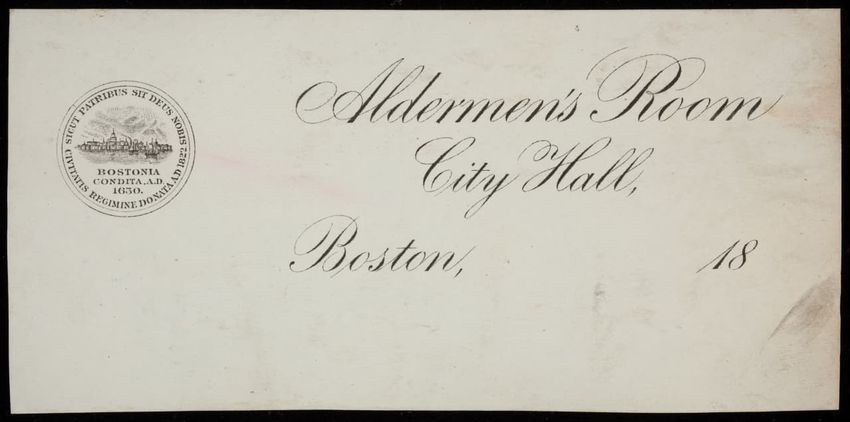 SICUT PATRIBUS SIT DEUS NOBIS
CIVITATIS REGIMINE DONATA AD 1822
BOSTONIA
CONDITA. A.D.
1630.
Aldermen's Room
City Hall,
Boston, 18